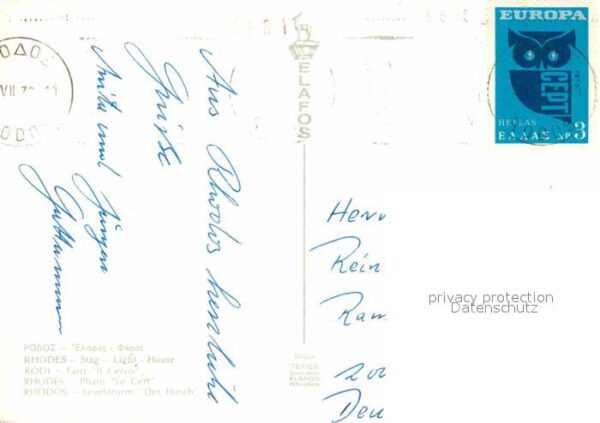 EUROPA
CEPT
1970
HELLAS
ΕΛΛΑΣ ΔΡ 3
ELAFOS
Aus Rhodos herzliche
Grüße
Anita und Jürgen
Herr
Rein
Ram
200
Deu
privacy protection
Datenschutz
ΡΟΔΟΣ - Έλαφος - Φάρος
RHODES - Stag - Light - House
RODI - Faro "Il Cervo"
RHODES - Phare "Le Cerf"
RHODOS - Leuchtturm "Der Hirsch"
787/65
ELAFOS
Rhodes